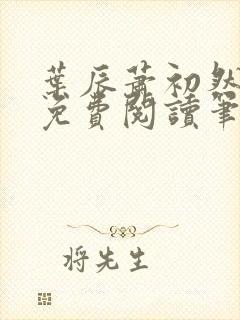 葉辰蕭初然
免費閱讀筆
將先生